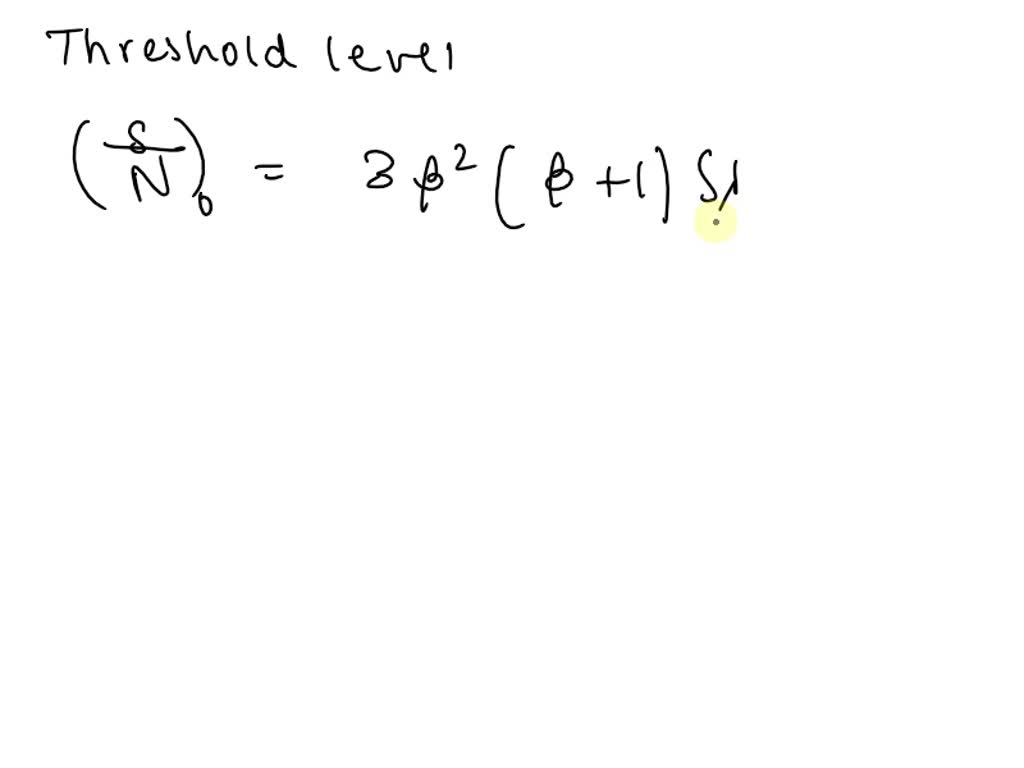 Threshold level
(S/N)₀ = 3 β² (β + 1) S